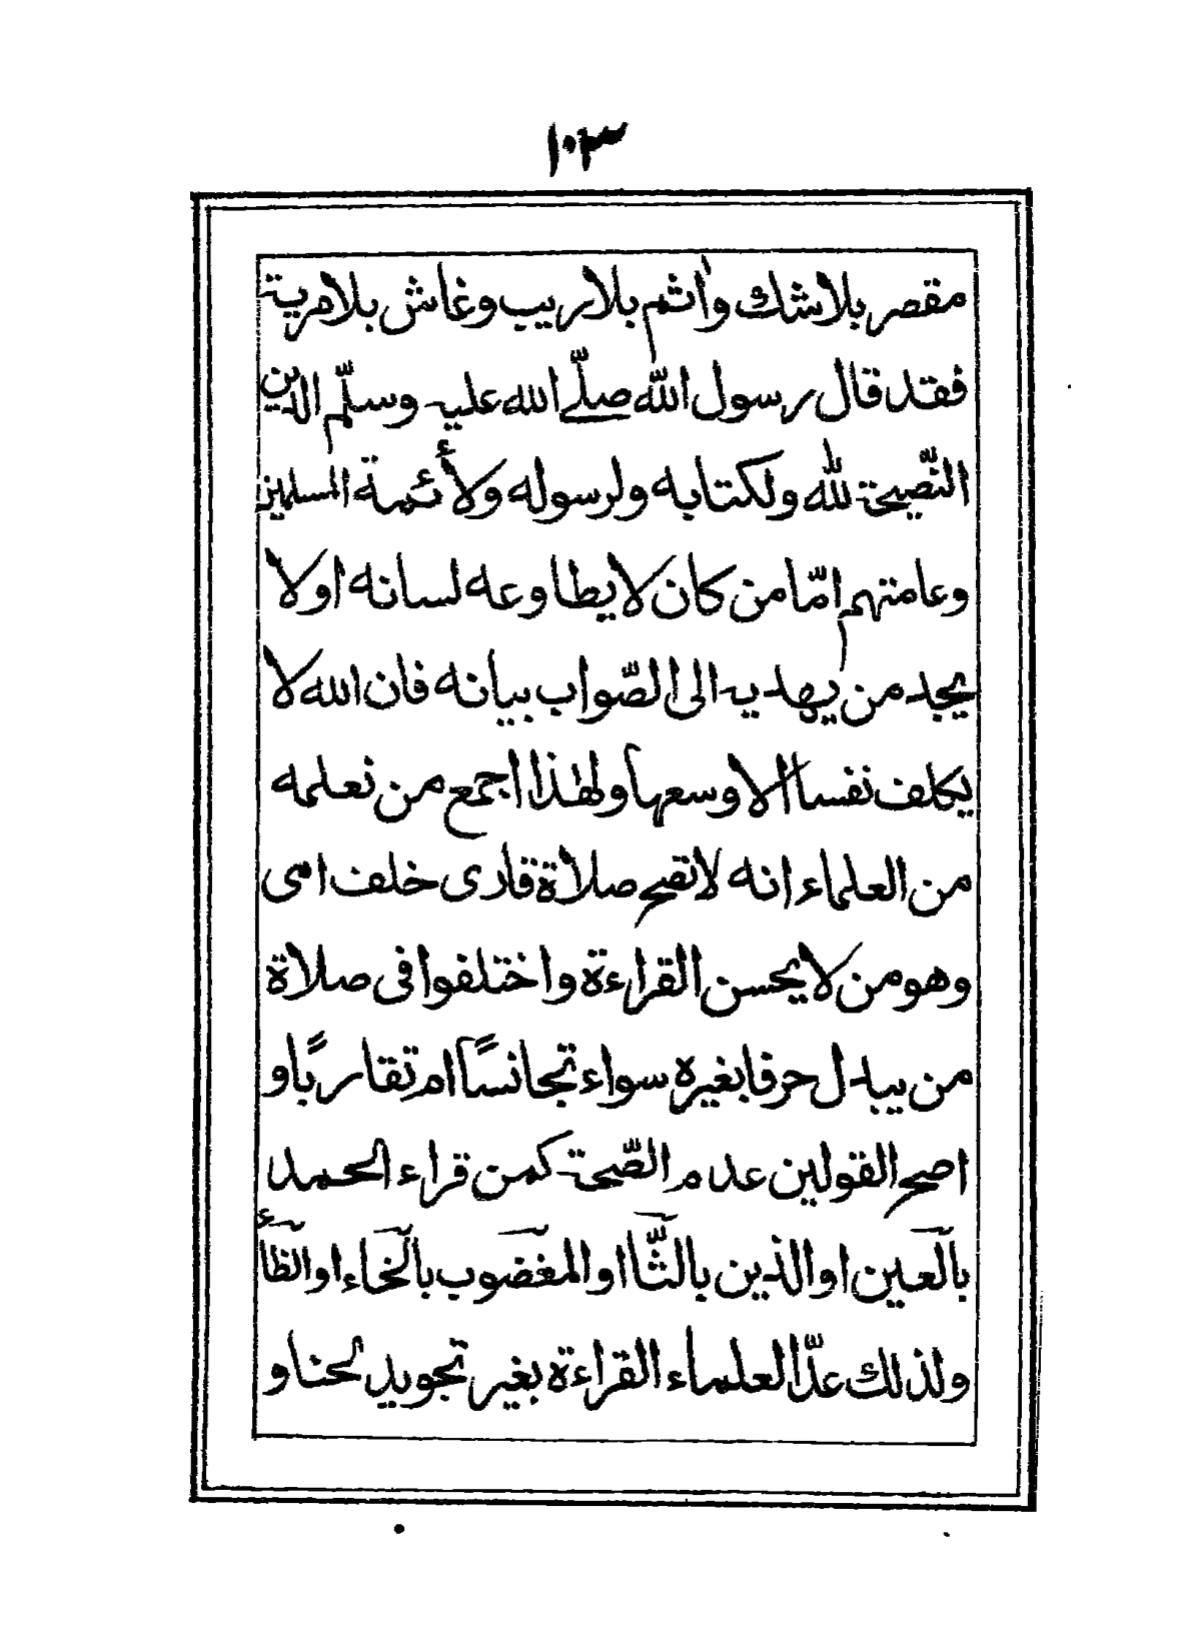 ١٠٣
مقصر بلا شك وأثم بلا ريب وغاش بلا مرية
فقد قال رسول الله صلّے الله عليه وسلّم الدين
النّصيحة لله ولكتابه ولرسوله ولأئمة المسلمين
وعامتهم امّا من كان لا يطاوعه لسانه اولا
يجد من يهديه الى الصّواب بيانه فان الله لا
يكلف نفسا الا وسعها ولهذا اجمع من نعلمه
من العلماء انه لا تصح صلاة قارى خلف امى
وهو من لا يحسن القراءة واختلفوا فى صلاة
من يبدل حرفا بغيره سواء تجانسًا ام تقاربًا و
اصح القولين عدم الصّحة كمن قراء الحمد
بالعين او الذين بالثّا او المغضوب بالخاء او الظأ
ولذلك عدّ العلماء القراءة بغير تجويد لحنا و